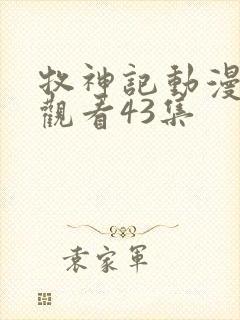 牧神記動漫
觀看43集
袁家軍